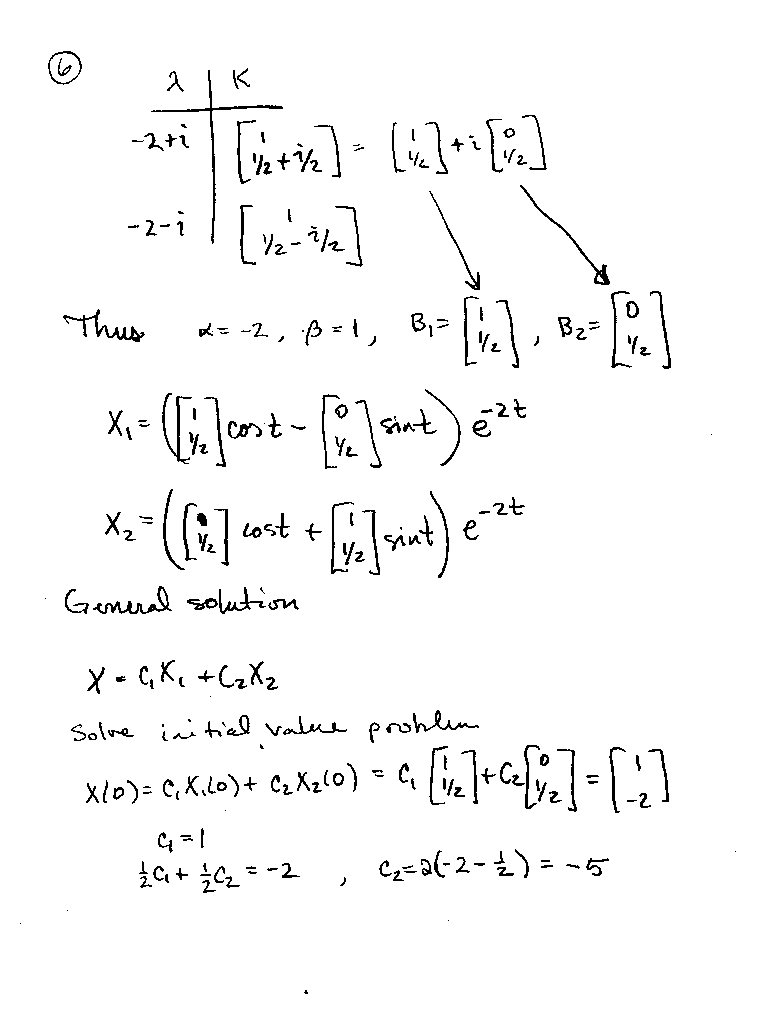 ⑥
λ | K
-2+i | [1; 1/2+i/2] = [1; 1/2] + i [0; 1/2]
-2-i | [1; 1/2-i/2]
Thus α = -2, β = 1, B₁ = [1; 1/2], B₂ = [0; 1/2]
X₁ = ([1; 1/2] cos t - [0; 1/2] sin t) e^{-2t}
X₂ = ([0; 1/2] cos t + [1; 1/2] sin t) e^{-2t}
General solution
X = C₁X₁ + C₂X₂
Solve initial value problem
X(0) = C₁X₁(0) + C₂X₂(0) = C₁ [1; 1/2] + C₂ [0; 1/2] = [1; -2]
C₁ = 1
½C₁ + ½C₂ = -2 , C₂ = 2(-2 - ½) = -5